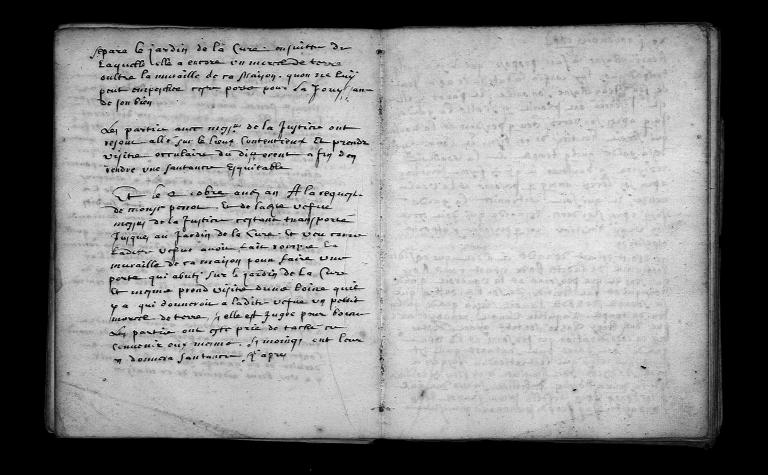 separe le jardin de la Cure ensuitte de
Laquelle elle a encore un morcel de terre
oultre la muraille de sa Maison, quon ne luy
peut empescher cette porte pour La Jouyssance
de son bien
Les parties avec mess.rs de la Justice ont
resoux aller sur le lieux Contentieux Et prendre
visitte occulaire du different afin den
rendre une santance Equitable
Et le 2 cobre audt an A la requeste
de monsr perrot Et de ladte vefve
mess.rs de la Justice cestant transporte
Jusques au Jardin de la Cure Et veu comme
Ladite vefve avoit fait rompre la
muraille de sa maison pour faire une
porte qui abuty sur le jardin de la Cure
Et mesme prend visitte dune boine quil
y a qui donneroit a ladite vefve un petit
morcel de terre, sy elle est Jugee pour boine
Les parties ont este prie de tacher de
Convenir eux mesme. Sy moings ont leur
en donnera santance cy apres